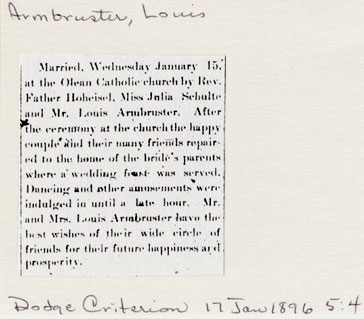 Armbruster, Louis
Married, Wednesday January 15,
at the Olean Catholic church by Rev.
Father Hoheisel, Miss Julia Schulte
and Mr. Louis Armbruster. After
the ceremony at the church the happy
couple and their many friends repair-
ed to the home of the bride's parents
where a wedding feast was served.
Dancing and other amusements were
indulged in until a late hour. Mr.
and Mrs. Louis Armbruster have the
best wishes of their wide circle of
friends for their future happiness and
prosperity.
Dodge Criterion 17 Jan 1896 5:4